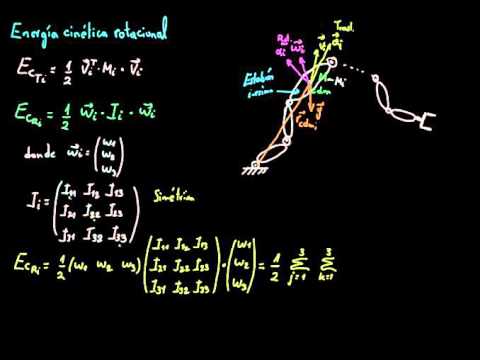 Energía cinética rotacional
E_{C_{Ti}} = 1/2 v⃗_i^T · M_i · v⃗_i
E_{C_{Ri}} = 1/2 w⃗_i · I_i · w⃗_i
donde w⃗_i = (w1 w2 w3)
I_i = (I11 I12 I13
I21 I22 I23
I31 I32 I33) Simétrica
E_{C_{Ri}} = 1/2 (w1 w2 w3) (I11 I12 I13
I21 I22 I23
I31 I32 I33) · (w1 w2 w3) = 1/2 Σ_{j=1}^{3} Σ_{k=1}^{3}
Rot.
α⃗_i w⃗_i
Trasl.
v⃗_i a⃗_i
Eslabón
i-ésimo
M_i
g⃗
r⃗_{cdm_i}